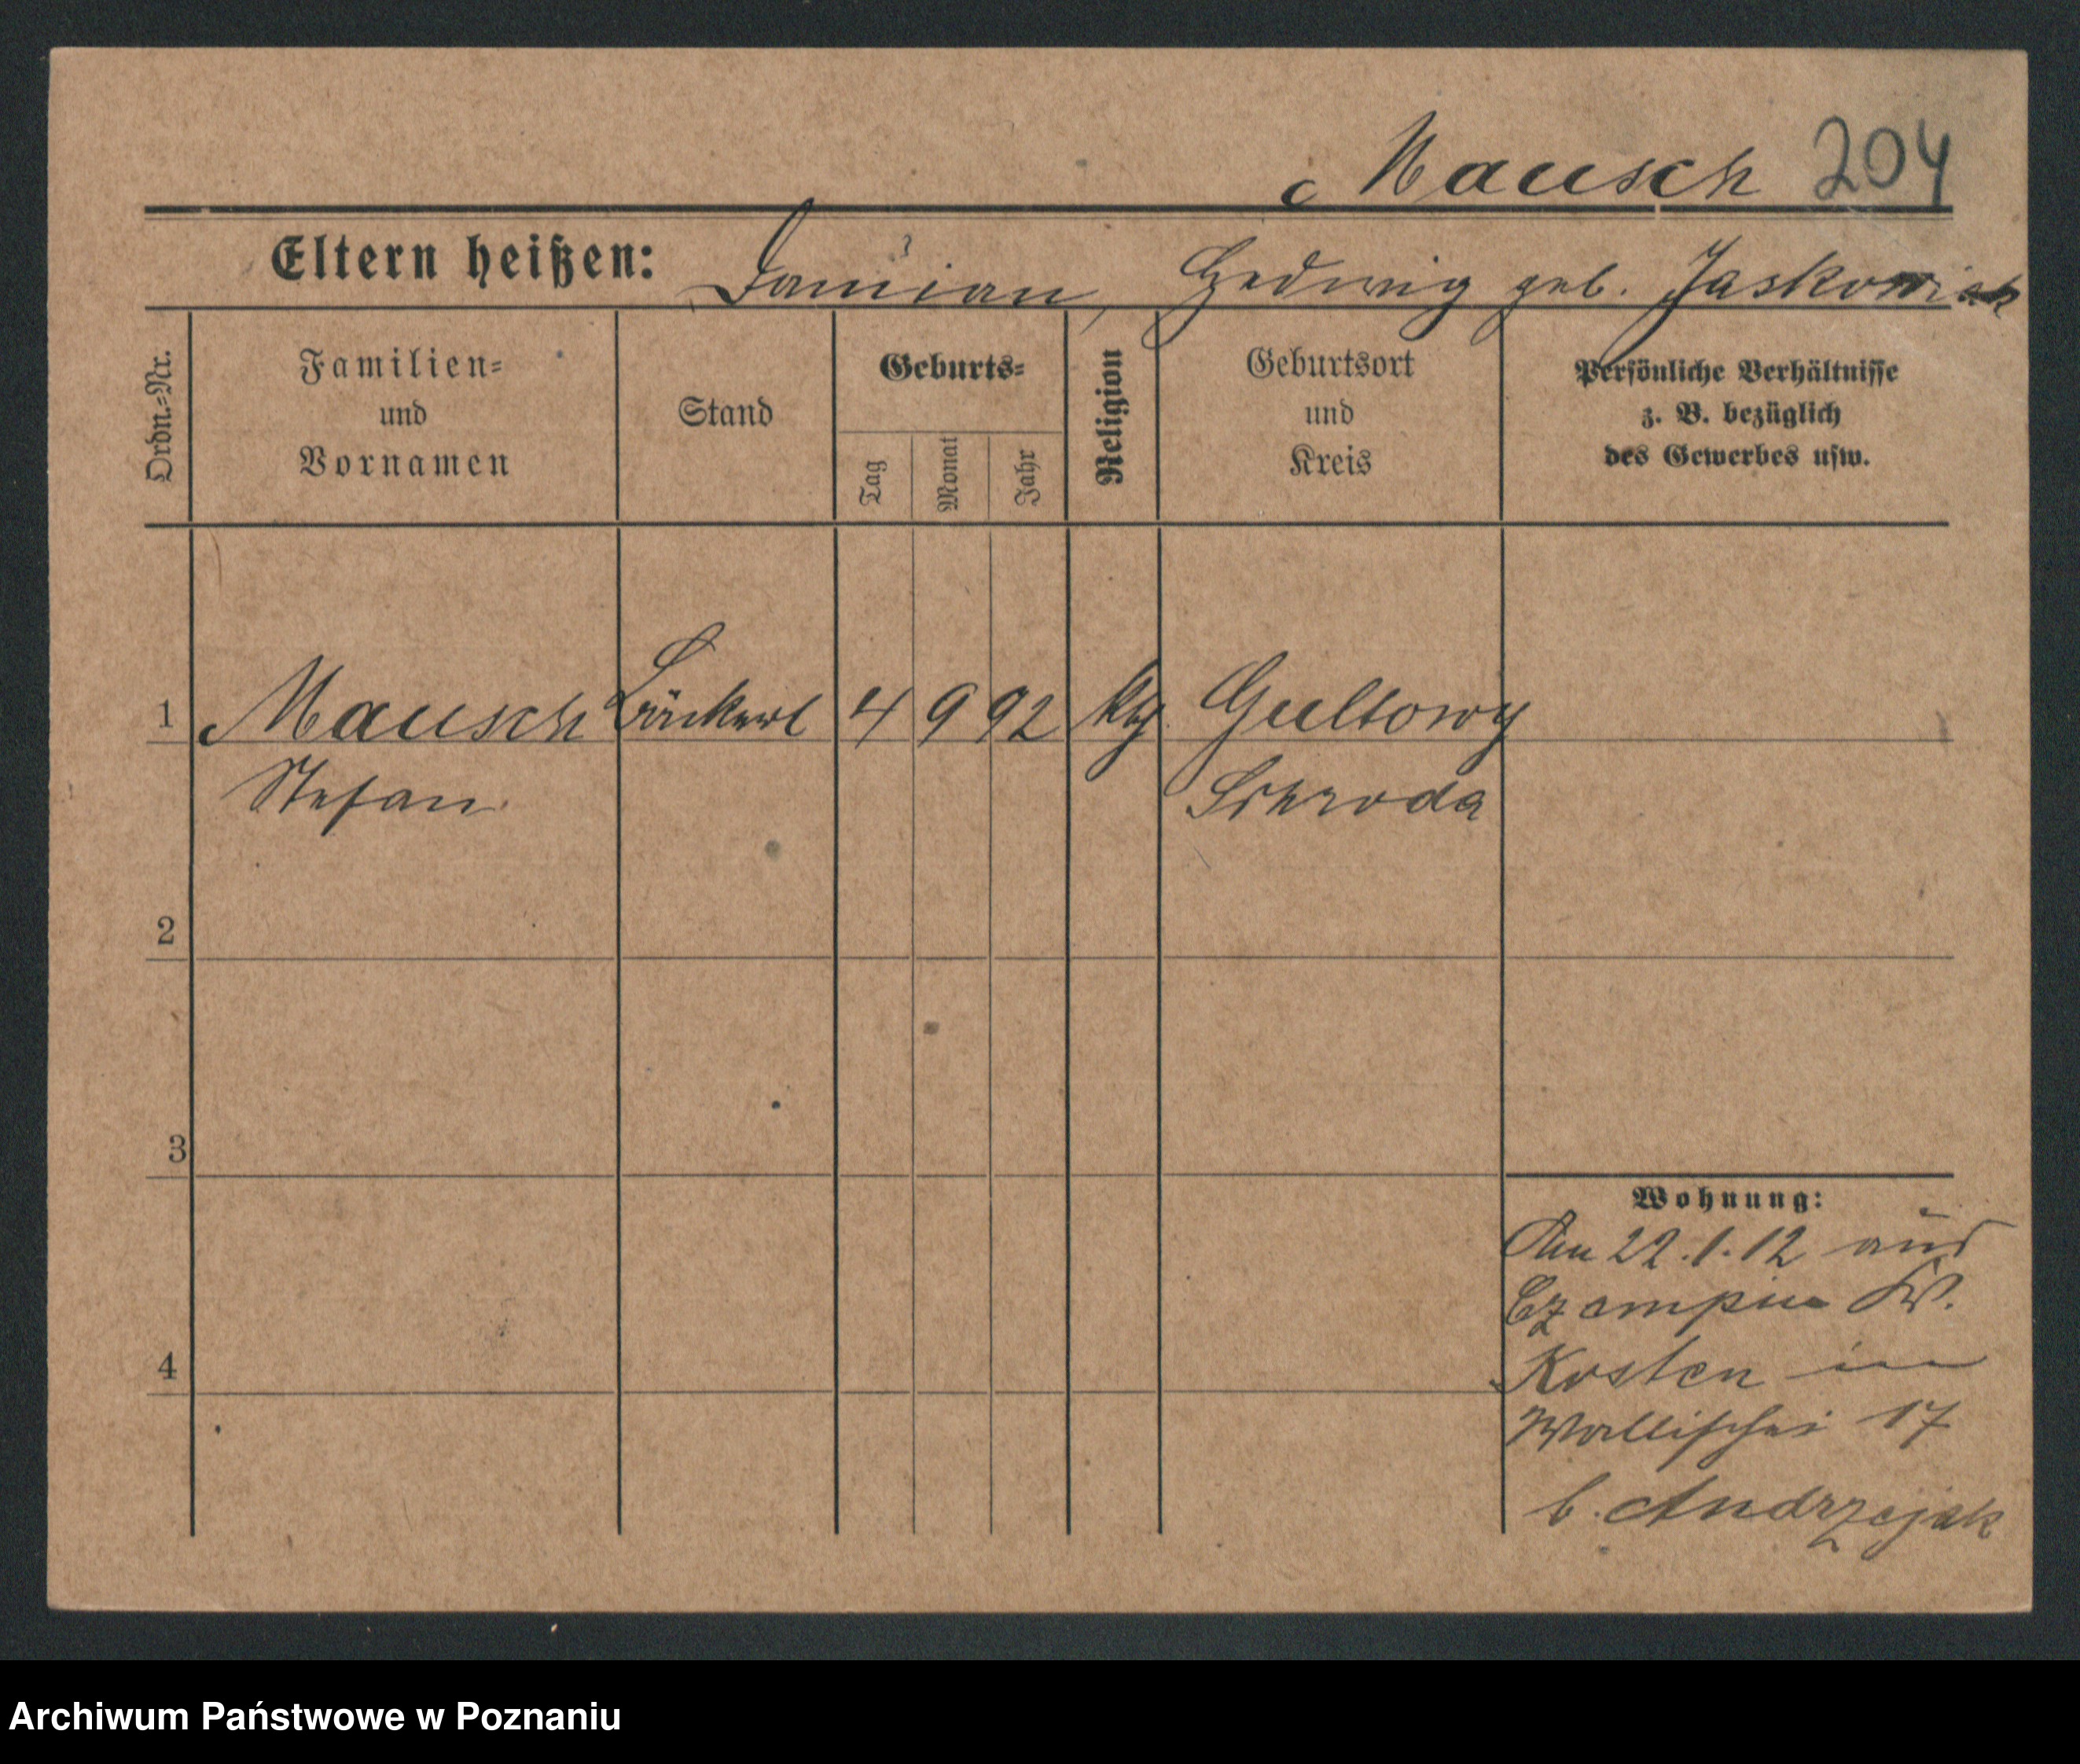 Mausch 204
Eltern heißen: Damian, Hedwig geb. Jaskowiak
Ordn.-Nr.
Familien-
und
Vornamen
Stand
Geburts-
Tag
Monat
Jahr
Religion
Geburtsort
und
Kreis
Persönliche Verhältnisse
z. B. bezüglich
des Gewerbes usw.
1 Mausch 4 9 92 Gultowy
Stefan Schroda
2
3
4
Wohnung:
Am 22.1.12 aus
Czempin
Kosten in
Wallischei 17
b. Andrzejak
Archiwum Państwowe w Poznaniu